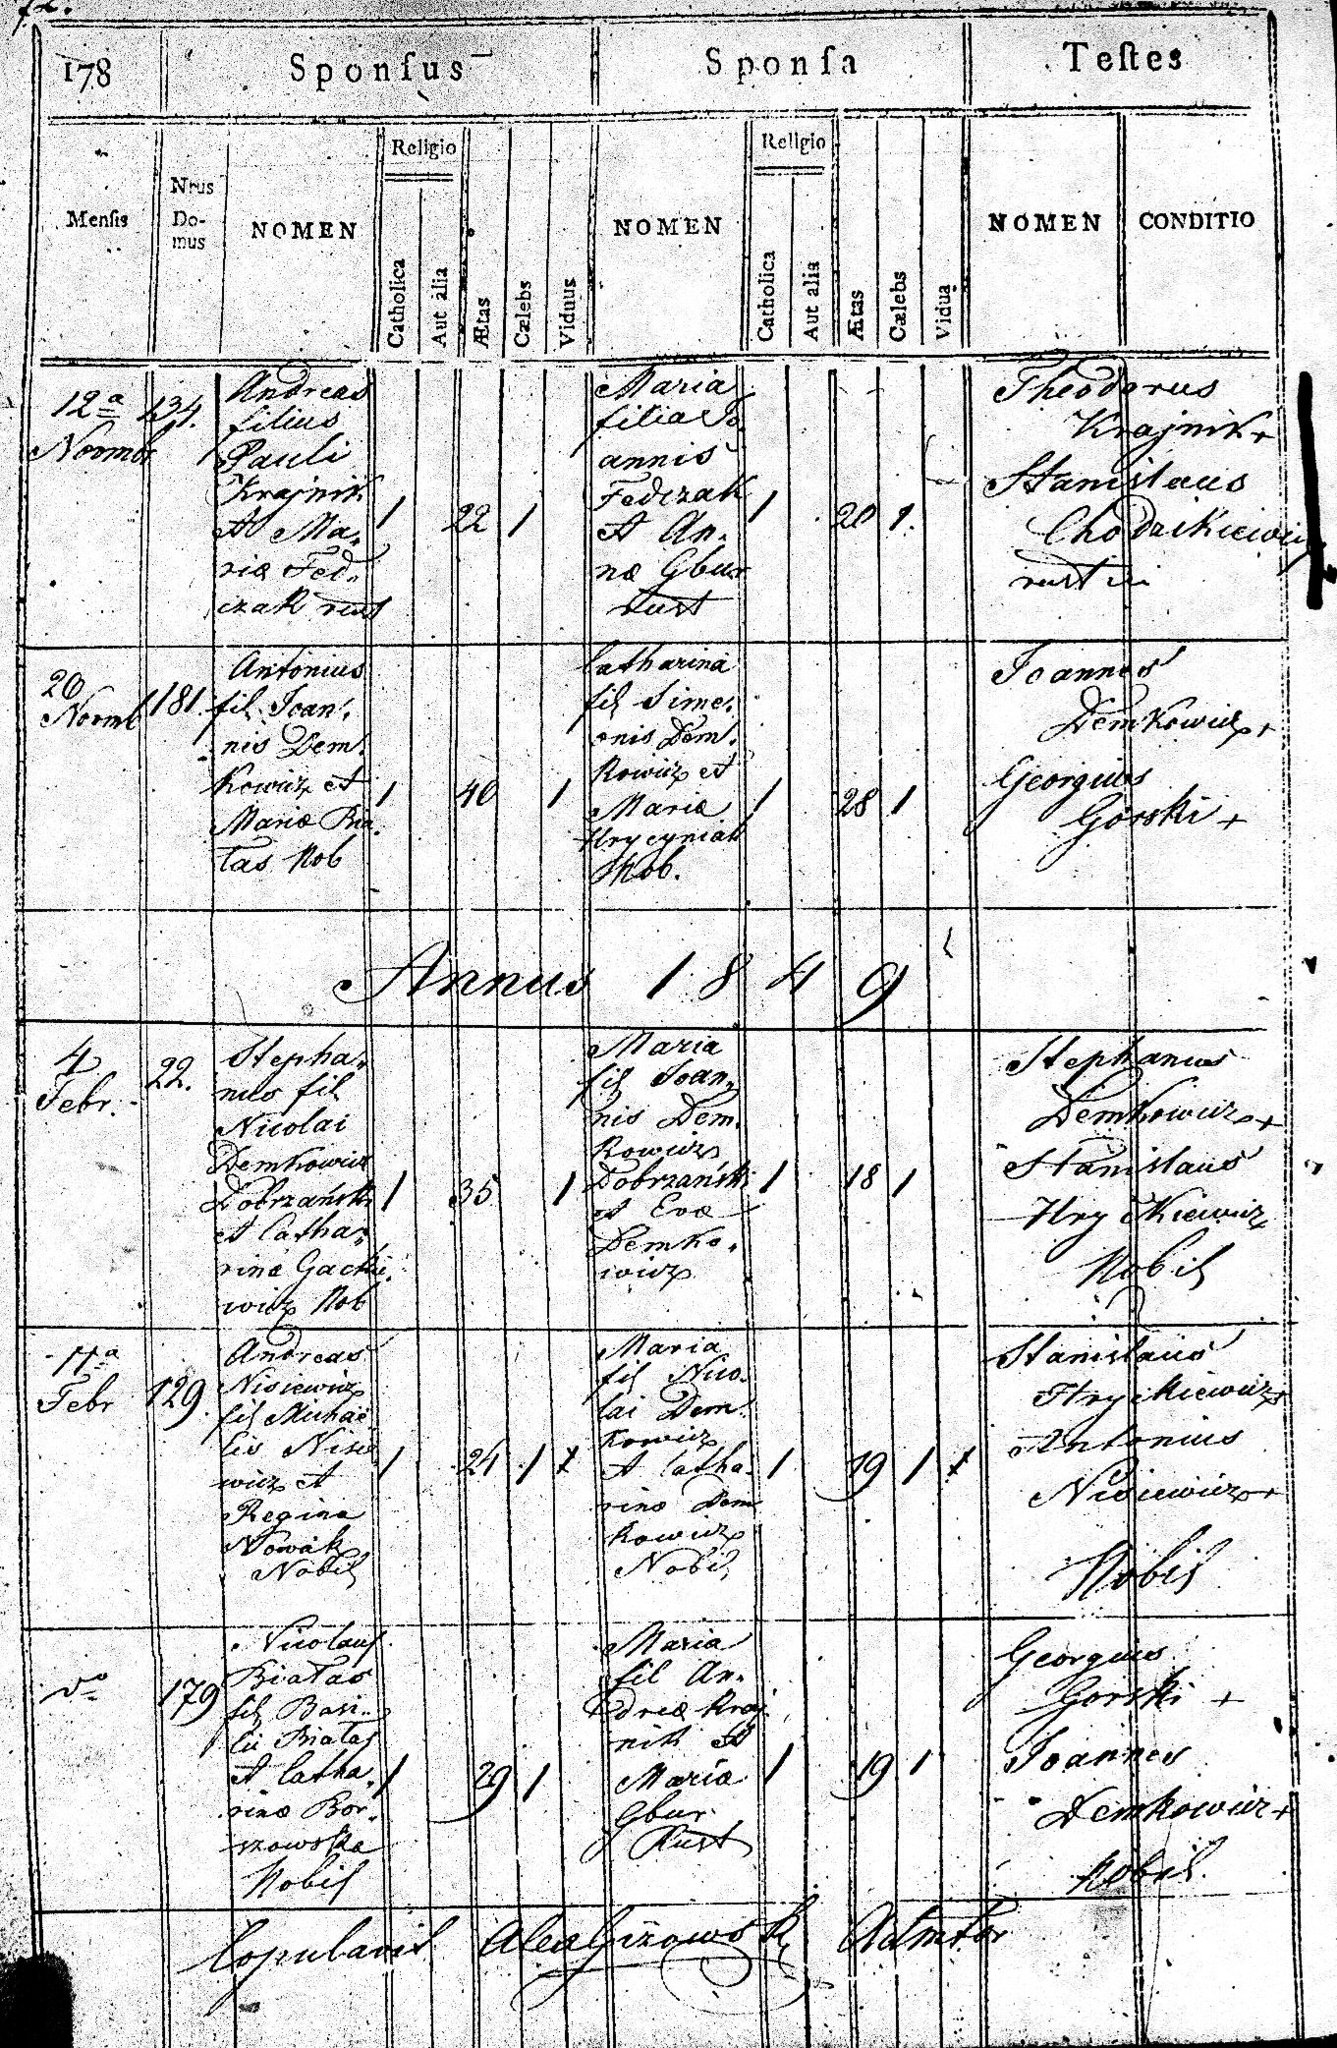 178
Sponſus
Sponſa
Teſtes
Menſis
Nrus Do-mus
NOMEN
Religio
Catholica
Aut alia
Ætas
Cælebs
Viduus
NOMEN
Religio
Catholica
Aut alia
Ætas
Cælebs
Vidua
NOMEN
CONDITIO
12ª
Novmbr
134.
Andreas
filius
Pauli
Krajnik
et Ma-
riæ Fed-
czak rust
1
22
1
Maria
filia Jo
annis
Fedczak
et An-
næ Gbur
Rust
1
20
1.
Theodorus
Krajnik +
Stanislaus
Chodzikiewicz
rustici
20
Novmb
181.
Antonius
fil Joan-
nis Dem-
kowicz et
Mariæ Bia
łas Nob
1
40
1
Catharina
fil Sime-
onis Dem-
kowicz et
Mariæ
Hrycyniak
Nob.
1
28
1
Joannes
Demkowicz +
Georgius
Górski +
Annus 1849
4
Febr.
22.
Stepha-
nus fil
Nicolai
Demkowicz
Dobrzański
et Catha-
rinæ Gacki-
wicz Nob
1
35
1
Maria
fil Joan-
nis Dem-
kowicz
Dobrzański
et Evæ
Demko-
wicz
1
18
1
Stephanus
Demkowicz +
Stanislaus
Hryckiewicz
Nobil
Febr
129.
Andreas
Nisiewicz
fil Michae-
lis Nisie
wicz et
Regina
Nowak
Nobil
1
24
1
Maria
fil Nico-
lai Dem-
kowicz
et Catha-
rinæ Dem
kowicz
Nobil
1
19
1
Stanislaus
Hryckiewicz +
Antonius
Nisiewicz +
Nobil
179
Nicolaus
Białas
fil Basi-
lii Białas
et Catha-
rinæ Bor-
szowska
Nobil
1
29
1
Maria
fil An-
dreæ Kraj
nik et
Mariæ
Gbur
Rust
1
19
1
Georgius
Gorski +
Joannes
Demkowicz +
Nobil.
Copulavit
Admtor